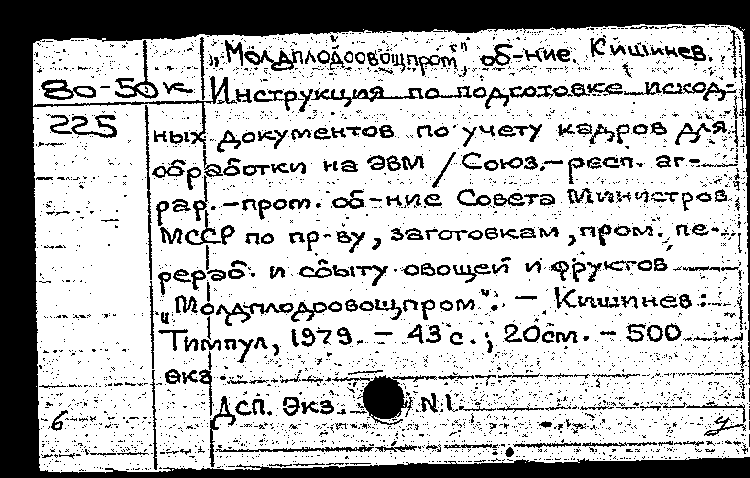 „Молдплодоовощпром", об-ние. Кишинев.
80-50к Инструкция по подготовке исход-
225 ных документов по учету кадров для
обработки на ЭВМ / Союз.-респ. аг-
рар.-пром. об-ние Совета Министров
МССР по пр-ву, заготовкам, пром. пе-
рераб. и сбыту овощей и фруктов
„Молдплодоовощпром". — Кишинев:
Тимпул, 1979. — 43 с.; 20см. — 500
экз.
6 Дсп. Экз. N1.